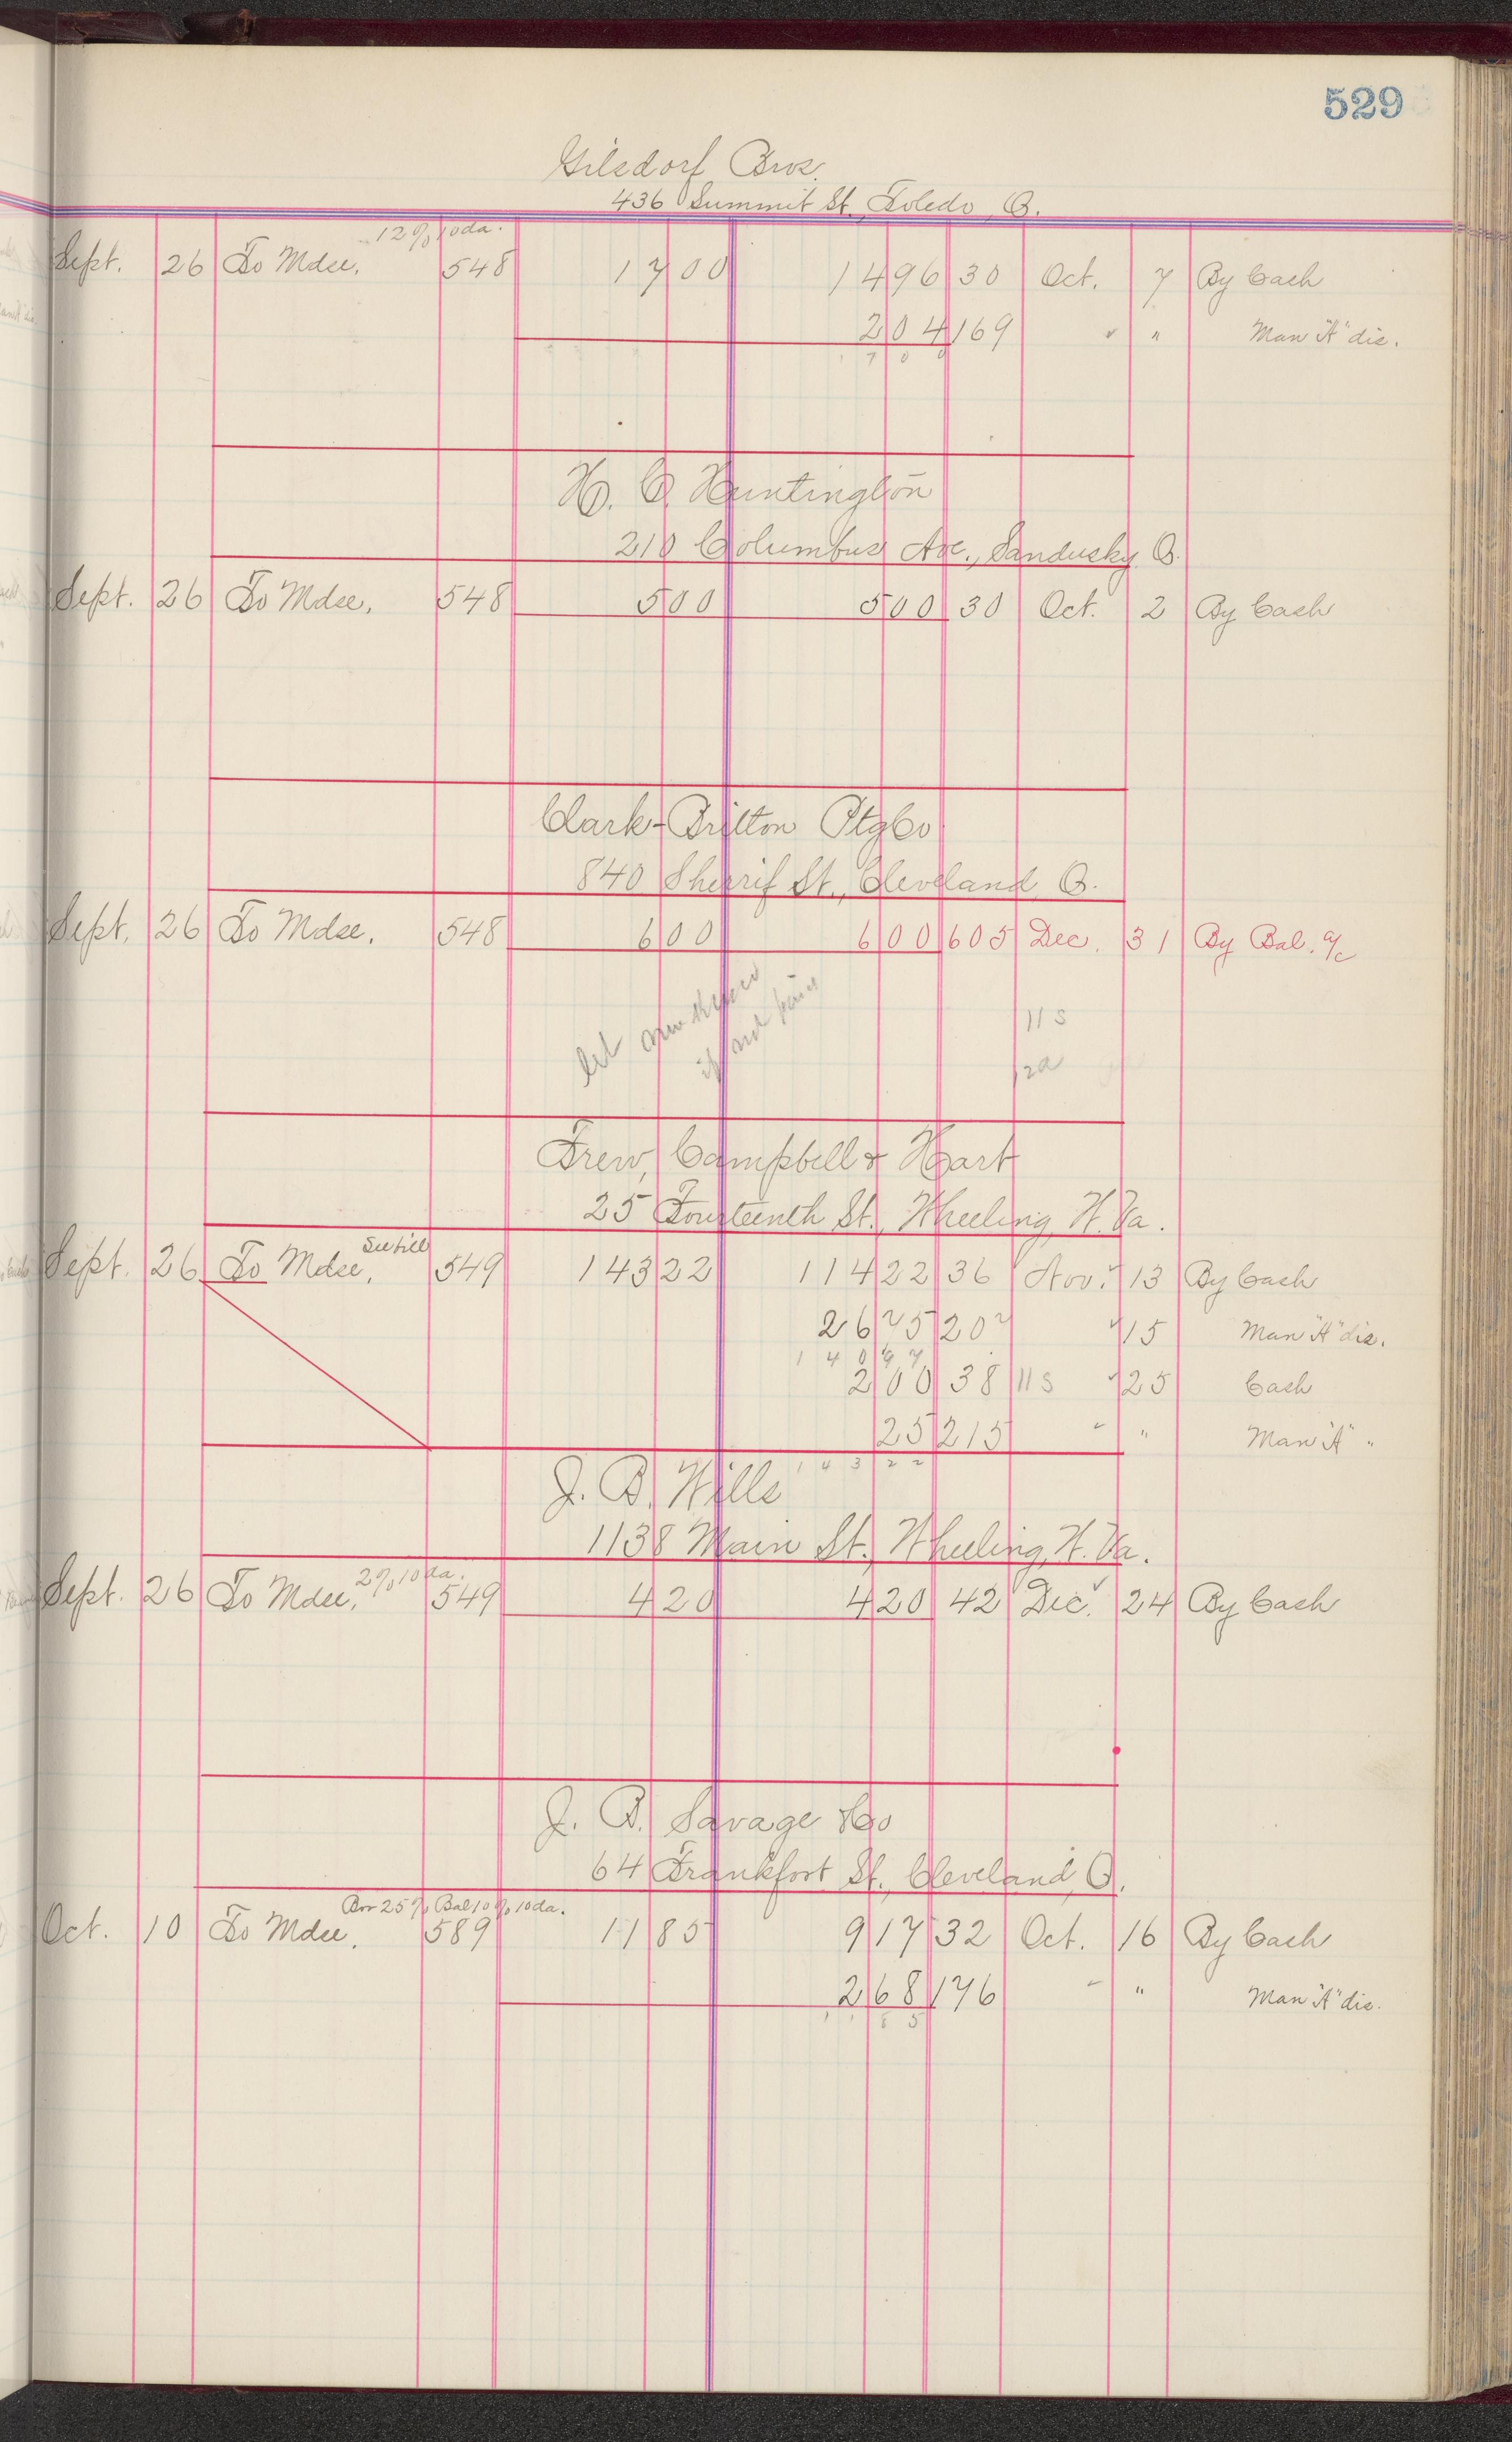 529
Gilsdorf Bros.
436 Summit St. Toledo, O.
12% 10 da.
Sept. 26 To Mdse. 548 17 00 14 96 30 Oct. 7 By Cash
2 04 169 " " Man "A" dis.
7 0 0
H. C. Huntington
210 Columbus Ave., Sandusky O.
Sept. 26 To Mdse. 548 5 00 5 00 30 Oct. 2 By Cash
Clark-Britton Ptg Co
840 Sherrif St., Cleveland O.
Sept. 26 To Mdse. 548 6 00 6 00 605 Dec. 31 By Bal. a/c
let me know
if not paid
11 s
Frew, Campbell & Hart
25 Fourteenth St., Wheeling, W. Va.
See bill
Sept. 26 To Mdse. 549 143 22 114 22 36 Nov. 13 By Cash
26 75 207 15 Man "A" dis.
1 4 0 9 7
2 00 38 11 s 25 Cash
25 215 " " Man "A" "
1 4 3 2 2
J. B. Wills
1138 Main St., Wheeling, W. Va.
2% 10 da.
Sept. 26 To Mdse. 549 4 20 4 20 42 Dec. 24 By Cash
J. B. Savage & Co
64 Frankfort St., Cleveland, O.
Bor 25% Bal 10% 10 da.
Oct. 10 To Mdse. 589 11 85 9 17 32 Oct. 16 By Cash
2 68 176 " " Man "A" dis.
1 1 8 5